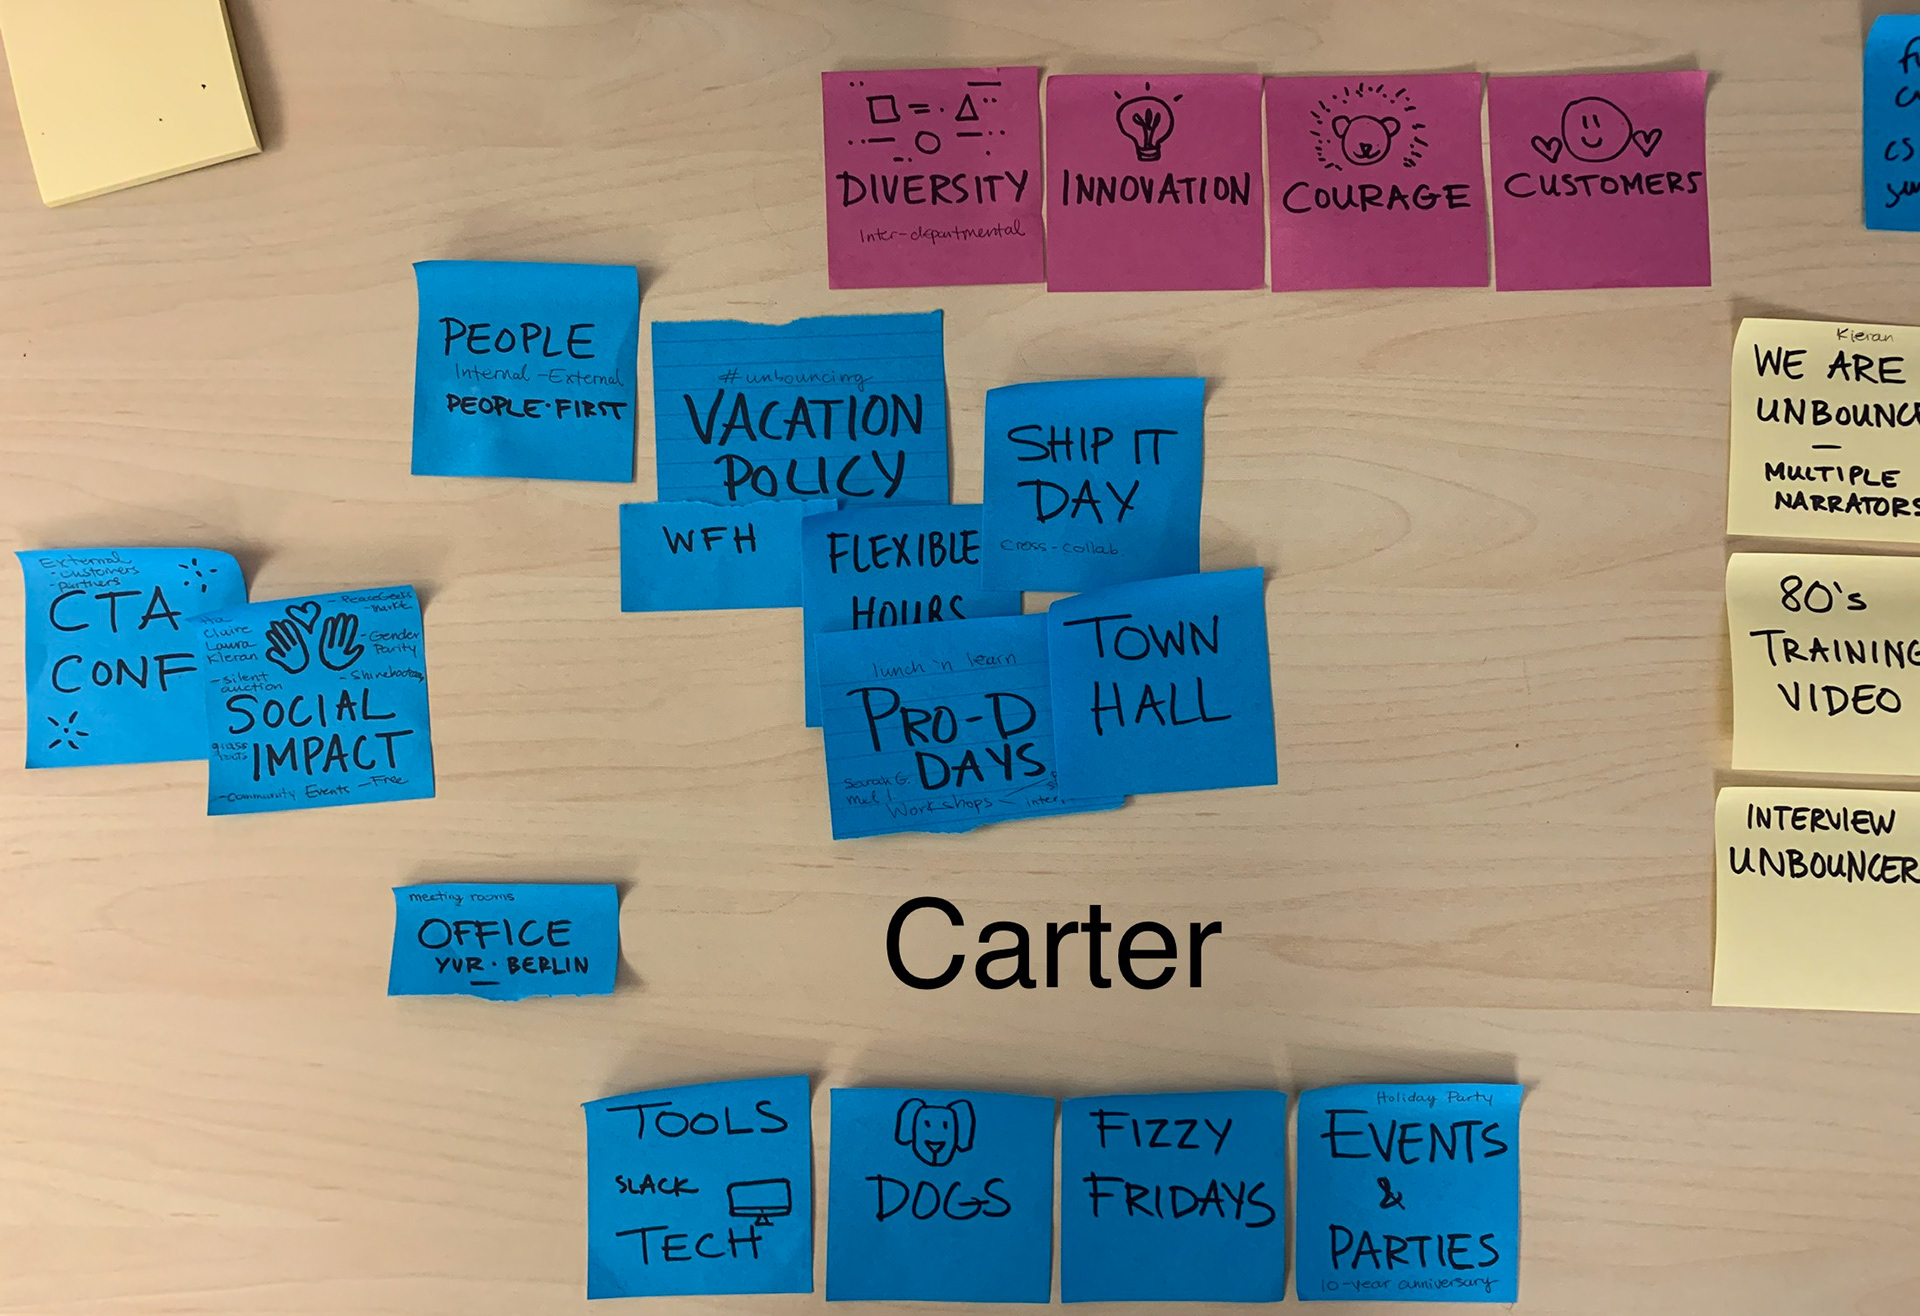 DIVERSITY
Inter-departmental
INNOVATION
COURAGE
CUSTOMERS
CS
PEOPLE
Internal - External
PEOPLE · FIRST
#unbouncing
VACATION
POLICY
WFH
FLEXIBLE
HOURS
SHIP IT
DAY
cross-collab.
TOWN
HALL
lunch 'n learn
PRO-D
DAYS
Sarah G.
Mel
Workshops
inter.
External
-customers
-partners
CTA
CONF
Claire
Laura
Kieran
-silent
auction
- PeaceGeeks
-Gender
Parity
SOCIAL
IMPACT
grass
roots
-Community Events -Free
Kieran
WE ARE
UNBOUNCE
—
MULTIPLE
NARRATORS
80's
TRAINING
VIDEO
INTERVIEW
UNBOUNCER
meeting rooms
OFFICE
YVR · BERLIN
Carter
TOOLS
SLACK
TECH
DOGS
FIZZY
FRIDAYS
Holiday Party
EVENTS
&
PARTIES
10-year anniversary